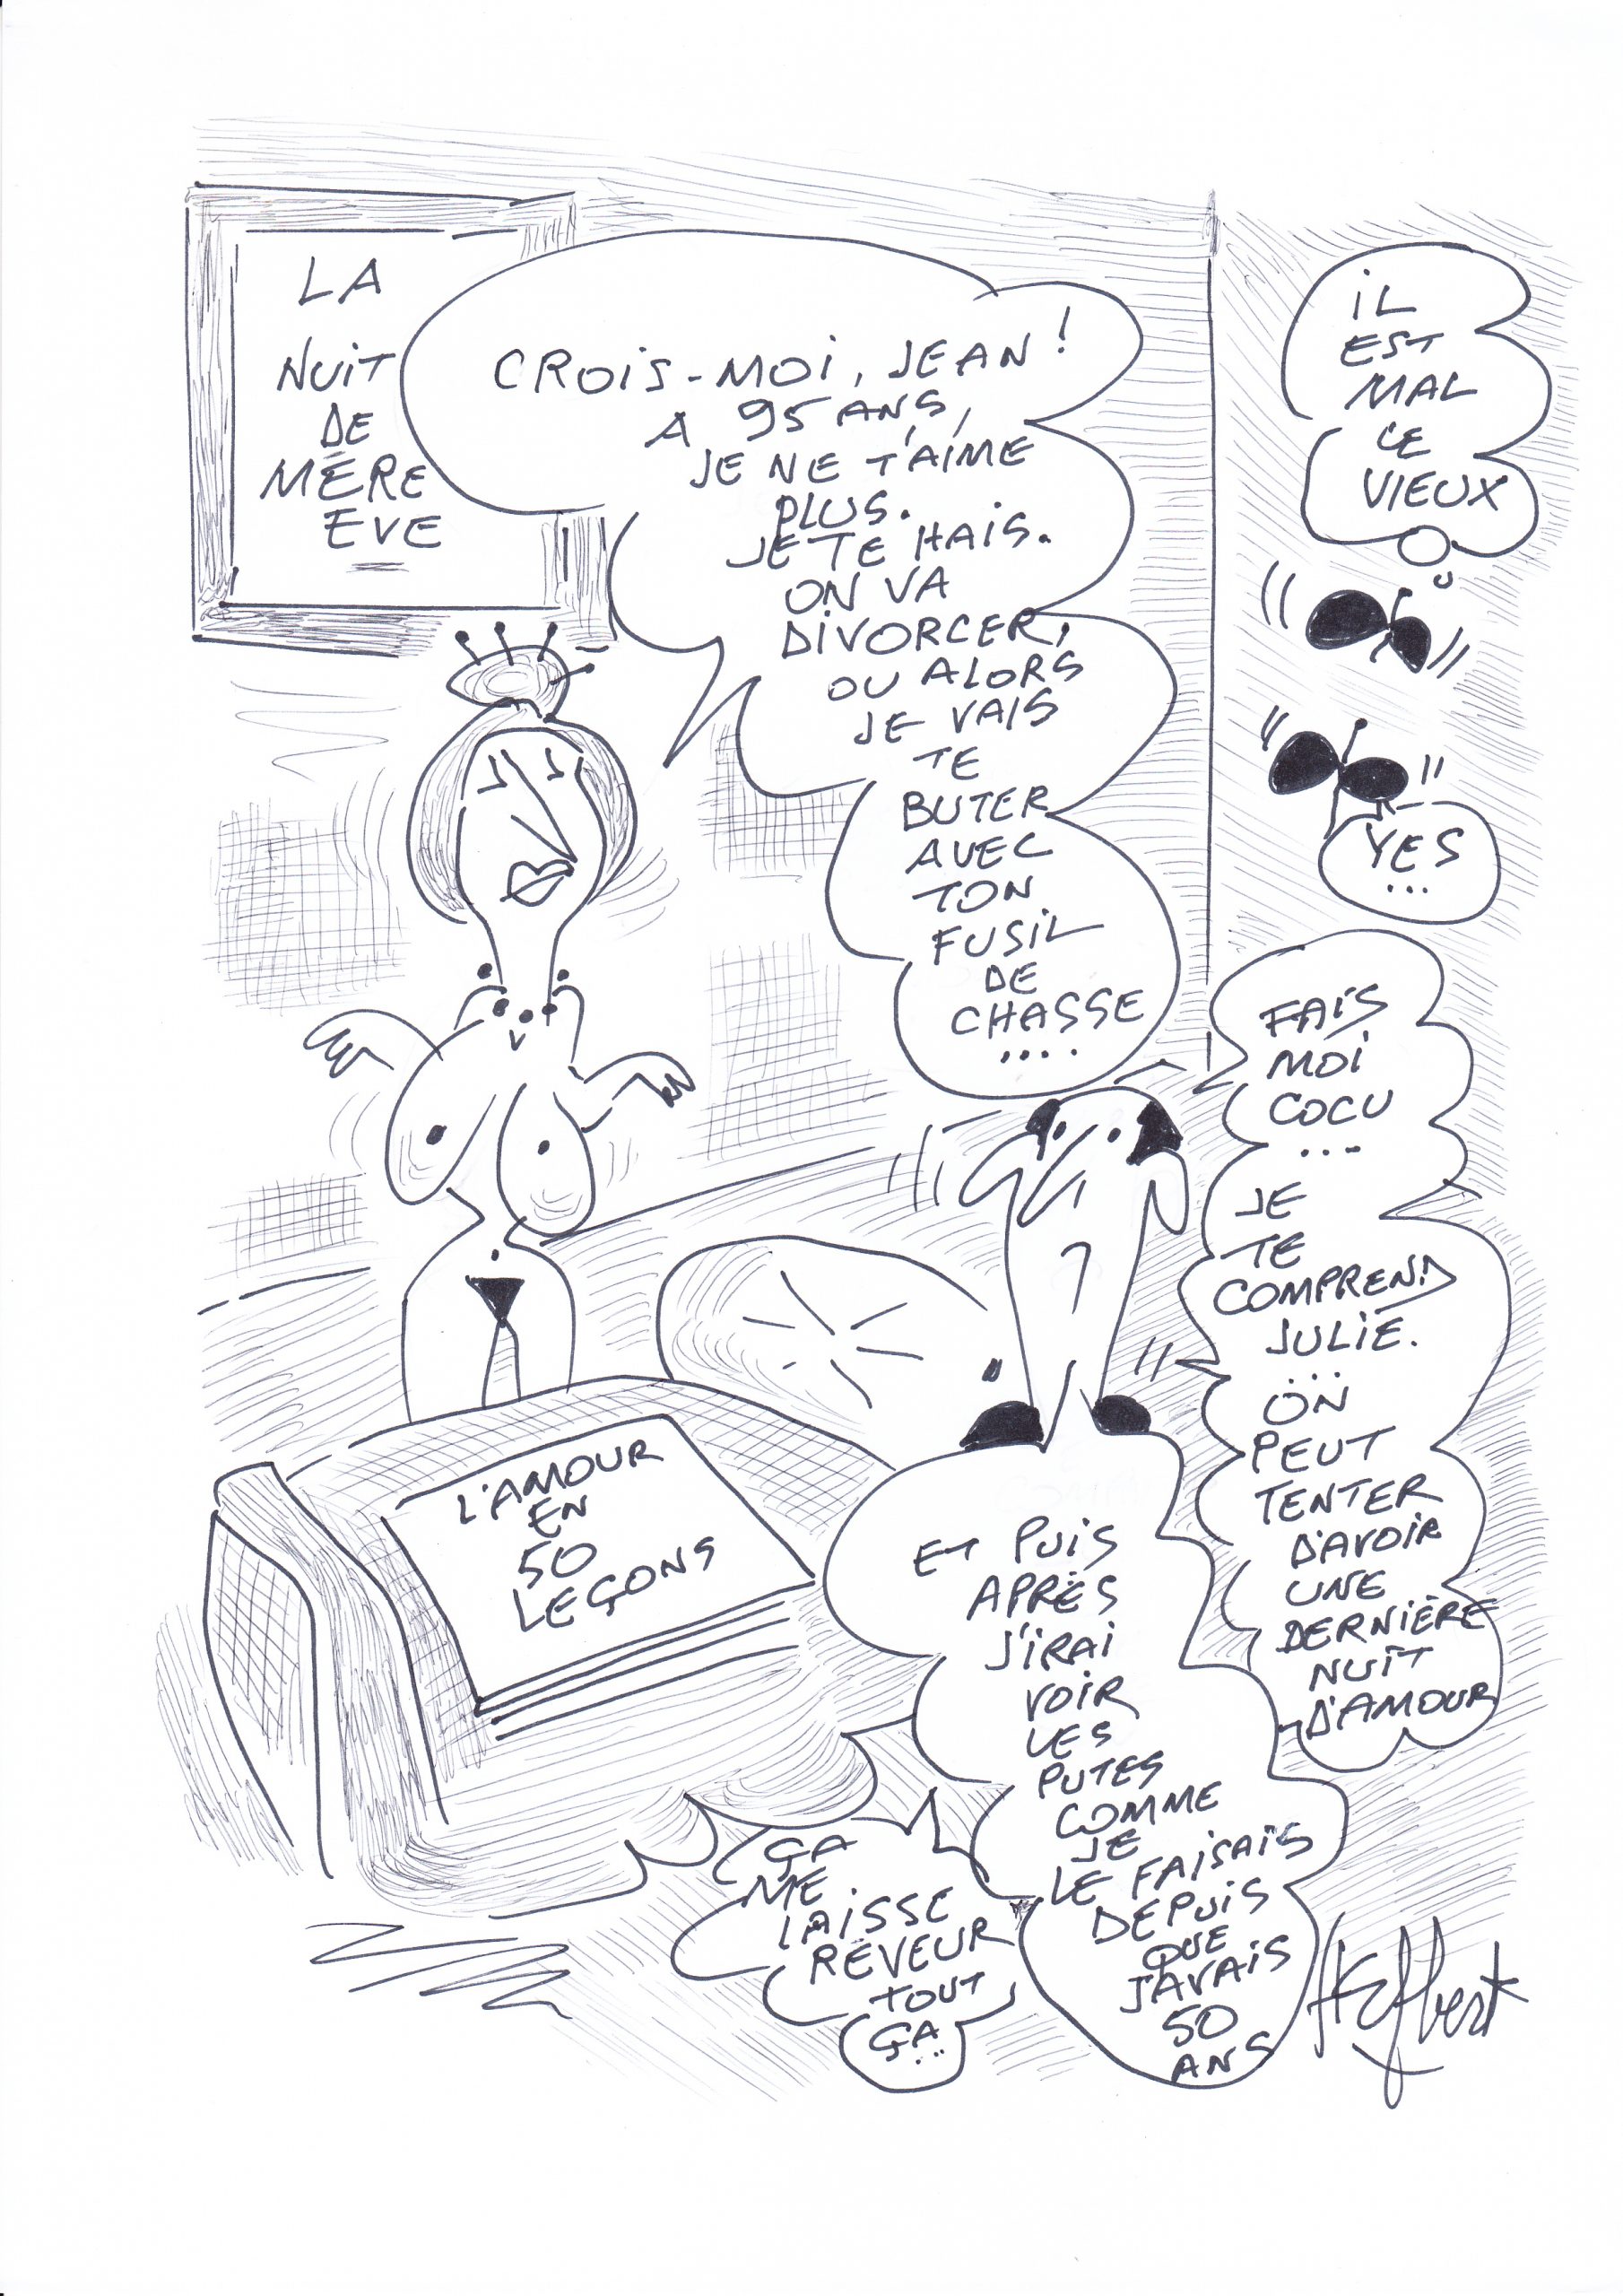 LA
NUIT
DE
MÈRE
EVE
CROIS-MOI, JEAN !
A 95 ANS,
JE NE T'AIME
PLUS.
JE TE HAIS.
ON VA
DIVORCER,
OU ALORS
JE VAIS
TE
BUTER
AVEC
TON
FUSIL
DE
CHASSE
....
IL
EST
MAL
CE
VIEUX
YES
...
FAIS
MOI
COCU
...
JE
TE
COMPREND
JULIE.
...
ON
PEUT
TENTER
D'AVOIR
UNE
DERNIÈRE
NUIT
D'AMOUR
L'AMOUR
EN
50
LEÇONS
ET PUIS
APRÈS
J'IRAI
VOIR
LES
PUTES
COMME
JE
LE FAISAIS
DEPUIS
QUE
J'AVAIS
50
ANS
ÇA
ME
LAISSE
RÊVEUR
TOUT
ÇA...